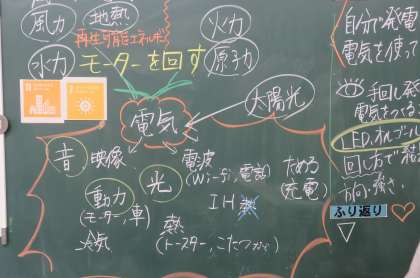 風力 地熱 火力
再生可能エネルギー
水力 モーターを回す 原子力
太陽光
電気
音 映像 光 電波
(Wi-Fi,電話)
ためる
(充電)
動力
(モーター,車)
IH 熱
熱
(トースター,こたつ
自分で発電
電気を使っ
手回し発
電気をつくる
LED,オルゴール
回し方で
方向・強さ
ふり返り